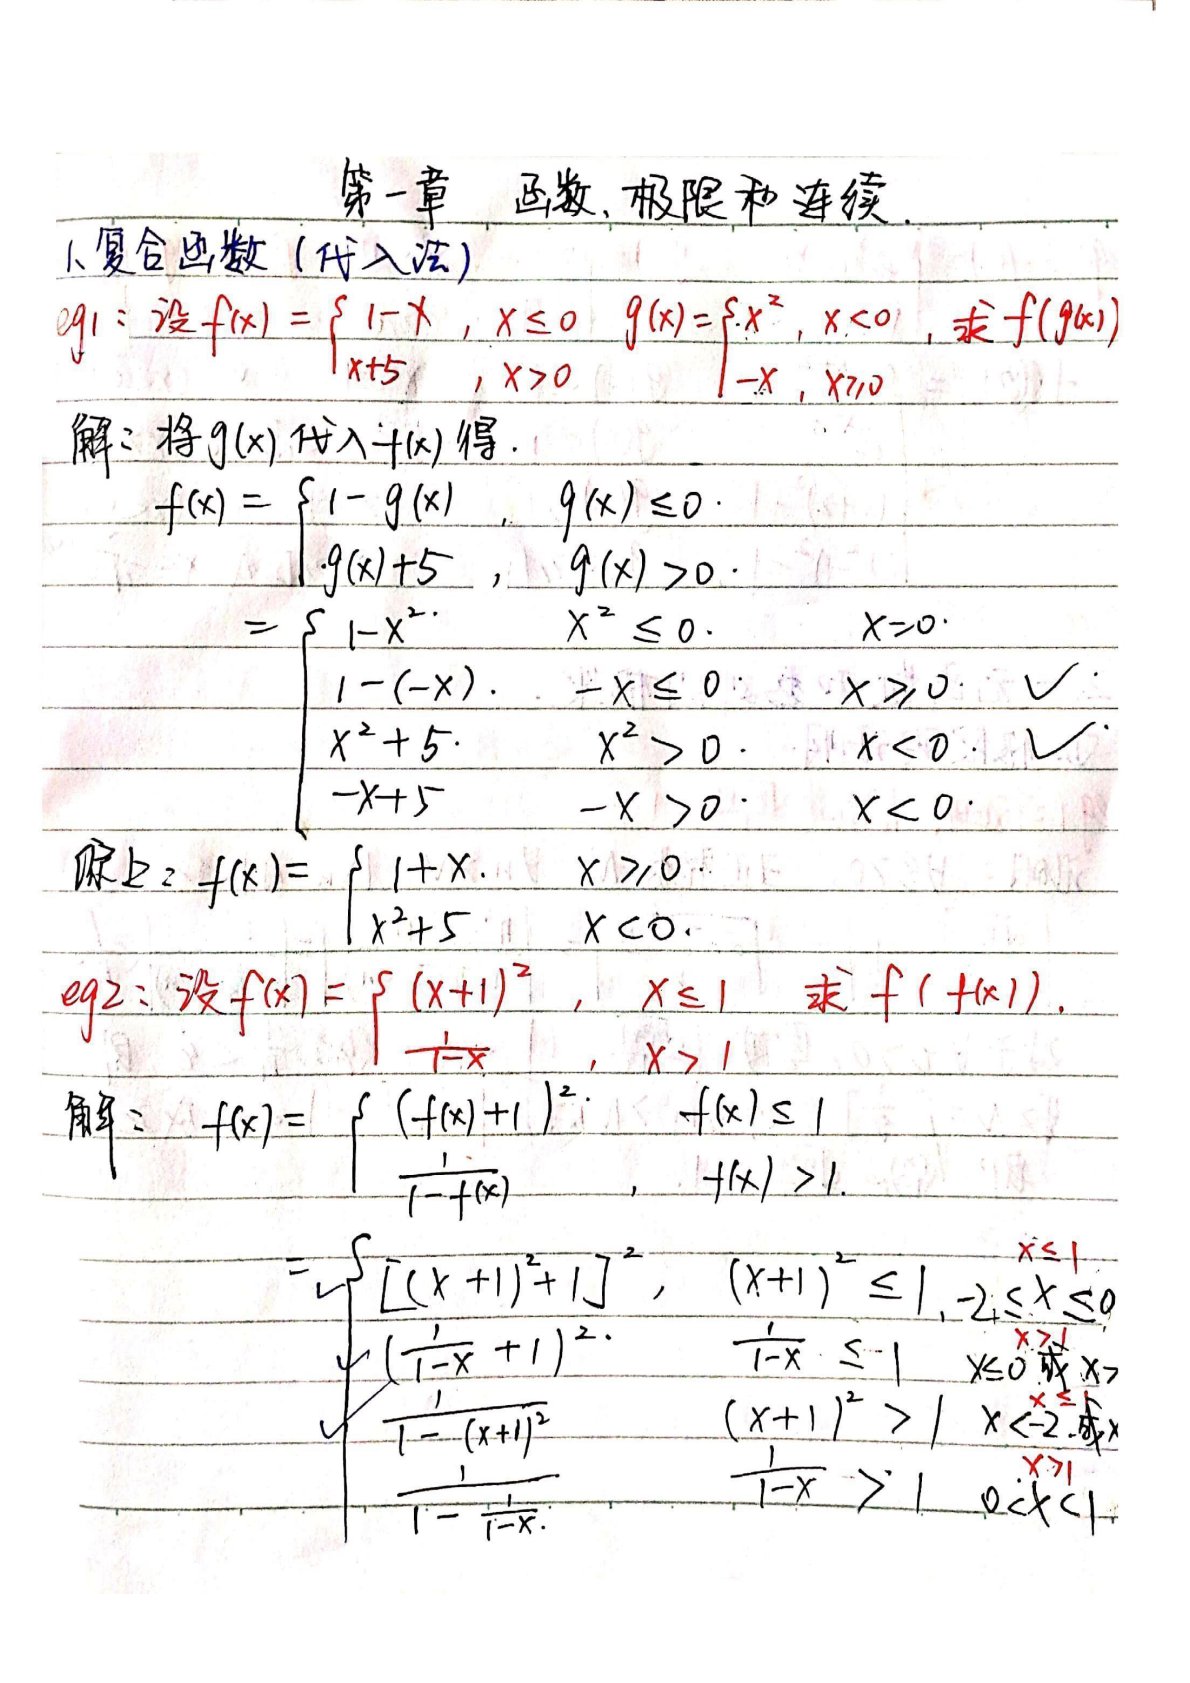 第一章 函数、极限和连续.
1、复合函数(代入法)
eg1: 设f(x) = { 1-x , x≤0 g(x) = { x² , x<0 , 求f(g(x))
x+5 , x>0 -x , x≥0
解: 将g(x)代入f(x)得.
f(x) = { 1-g(x) , g(x)≤0.
g(x)+5 , g(x)>0.
= { 1-x². x²≤0. x=0.
1-(-x). -x≤0. x≥0. ✓
x²+5. x²>0. x<0. ✓
-x+5 -x>0. x<0.
综上: f(x) = { 1+x. x≥0.
x²+5 x<0.
eg2: 设f(x) = { (x+1)² , x≤1 求f(f(x)).
1/(1-x) , x>1
解: f(x) = { (f(x)+1)². f(x)≤1
1/(1-f(x)) , f(x)>1.
x≤1
= ✓ { [(x+1)²+1]² , (x+1)²≤1, -2≤x≤0
x>1
✓ (1/(1-x)+1)². 1/(1-x) ≤1 x≤0或x>
x≤1
✓ 1/(1-(x+1)²) (x+1)²>1 x<-2.或x
x>1
1/(1-1/(1-x)). 1/(1-x) >1 0<x<1